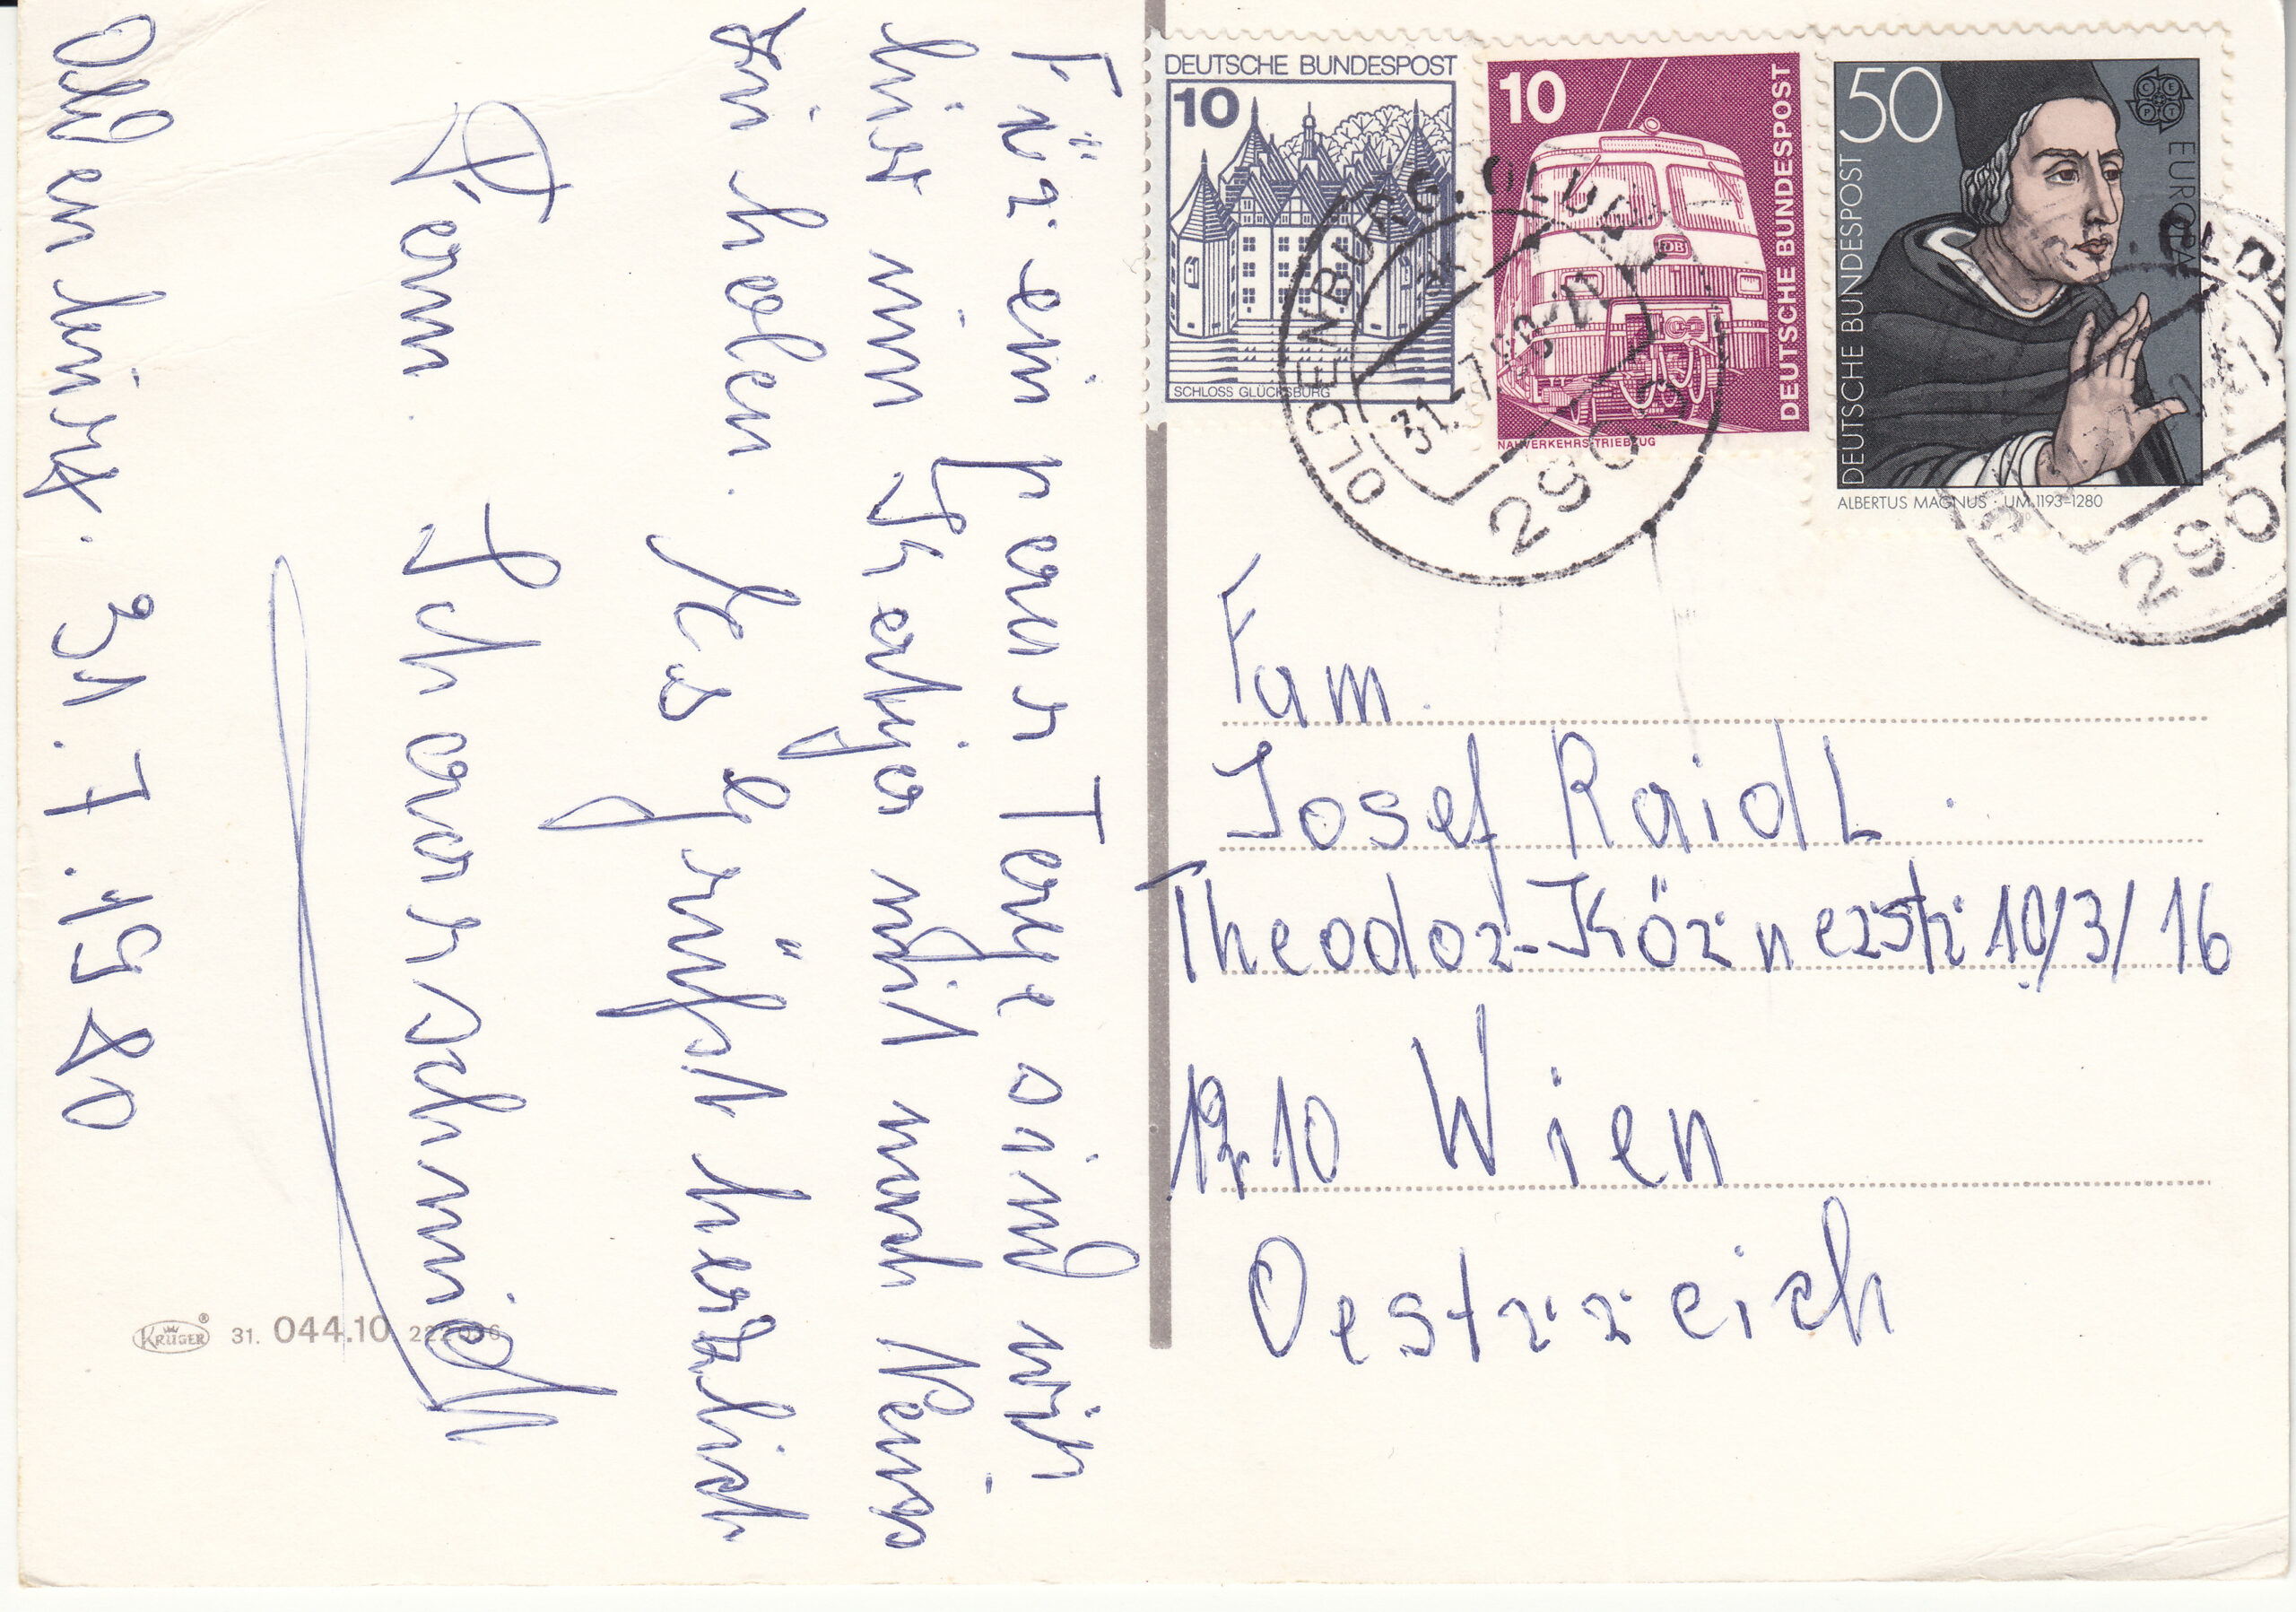 Für ein paar Tage sind wir
hier um Skatjar mit nach Neuss
zu holen. Es grüßt herzlich
Fam. Schwarzschmidt
Oldenburg. 31.7.1980
DEUTSCHE BUNDESPOST
10
SCHLOSS GLÜCKSBURG
10
DEUTSCHE BUNDESPOST
DB
NAHVERKEHRSTRIEBZUG
50
DEUTSCHE BUNDESPOST
EUROPA
CEPT
ALBERTUS MAGNUS · UM 1193–1280
OLDENBURG, OLDB
31.-7.80
2900
OLDB
2900
Fam.
Josef Raidl.
Theodor-Körnerstr. 10/3/16
1210 Wien
Oestrreich
KRÜGER® 31. 044.10